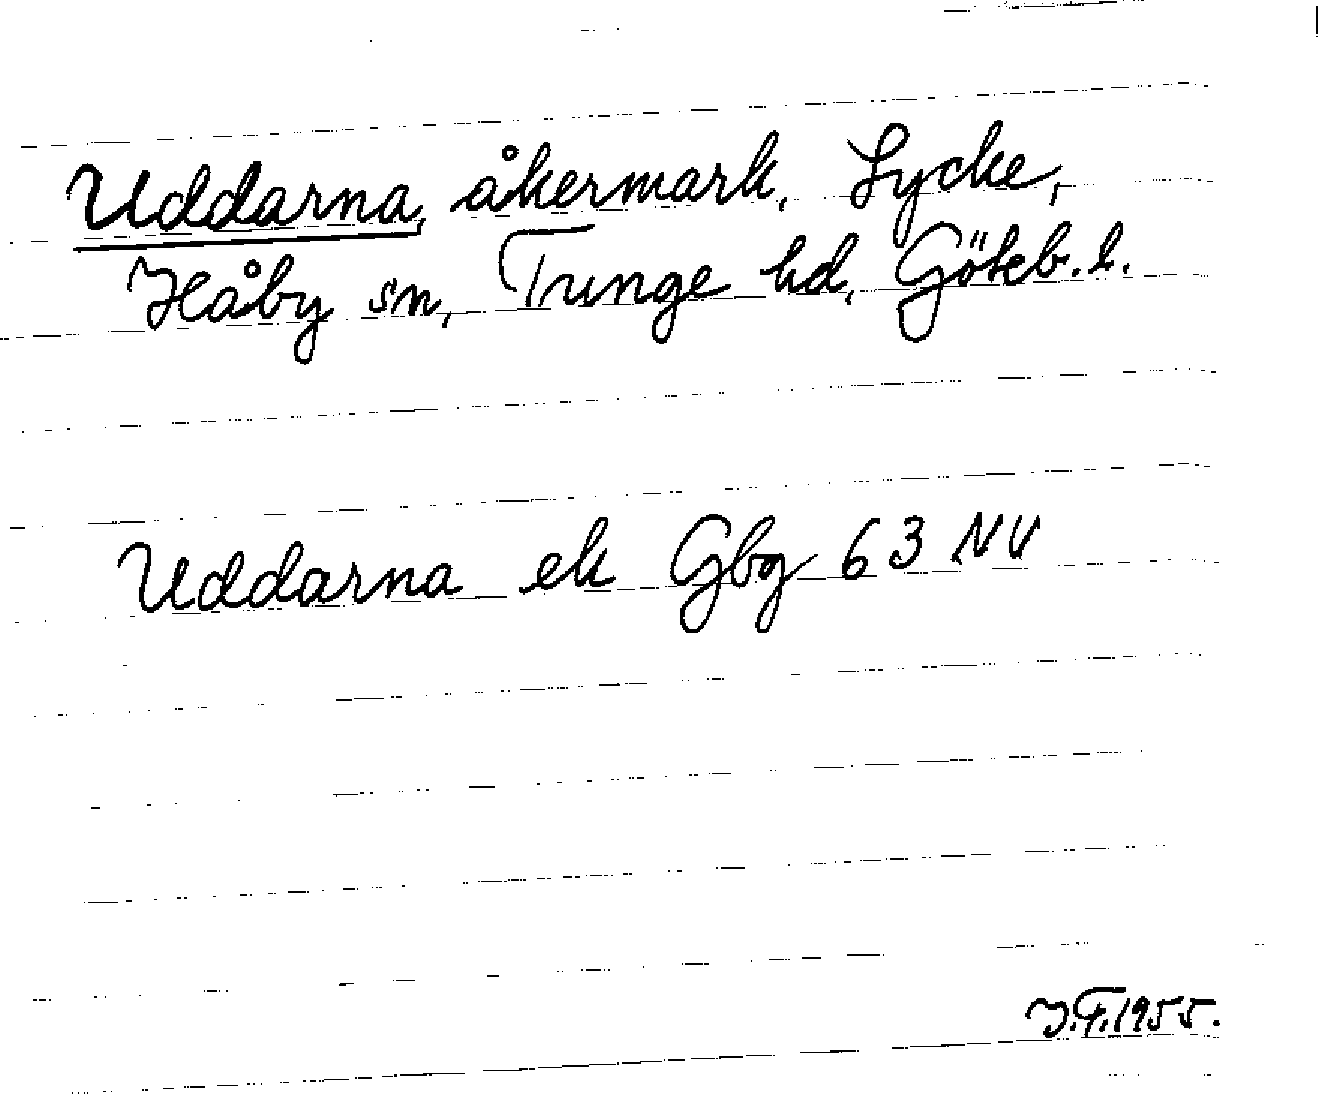 Uddarna, åkermark, Lycke,
Håby sn, Tunge hd, Göteb. l.
Uddarna ek Gbg 63 NV
J.F. 1955.